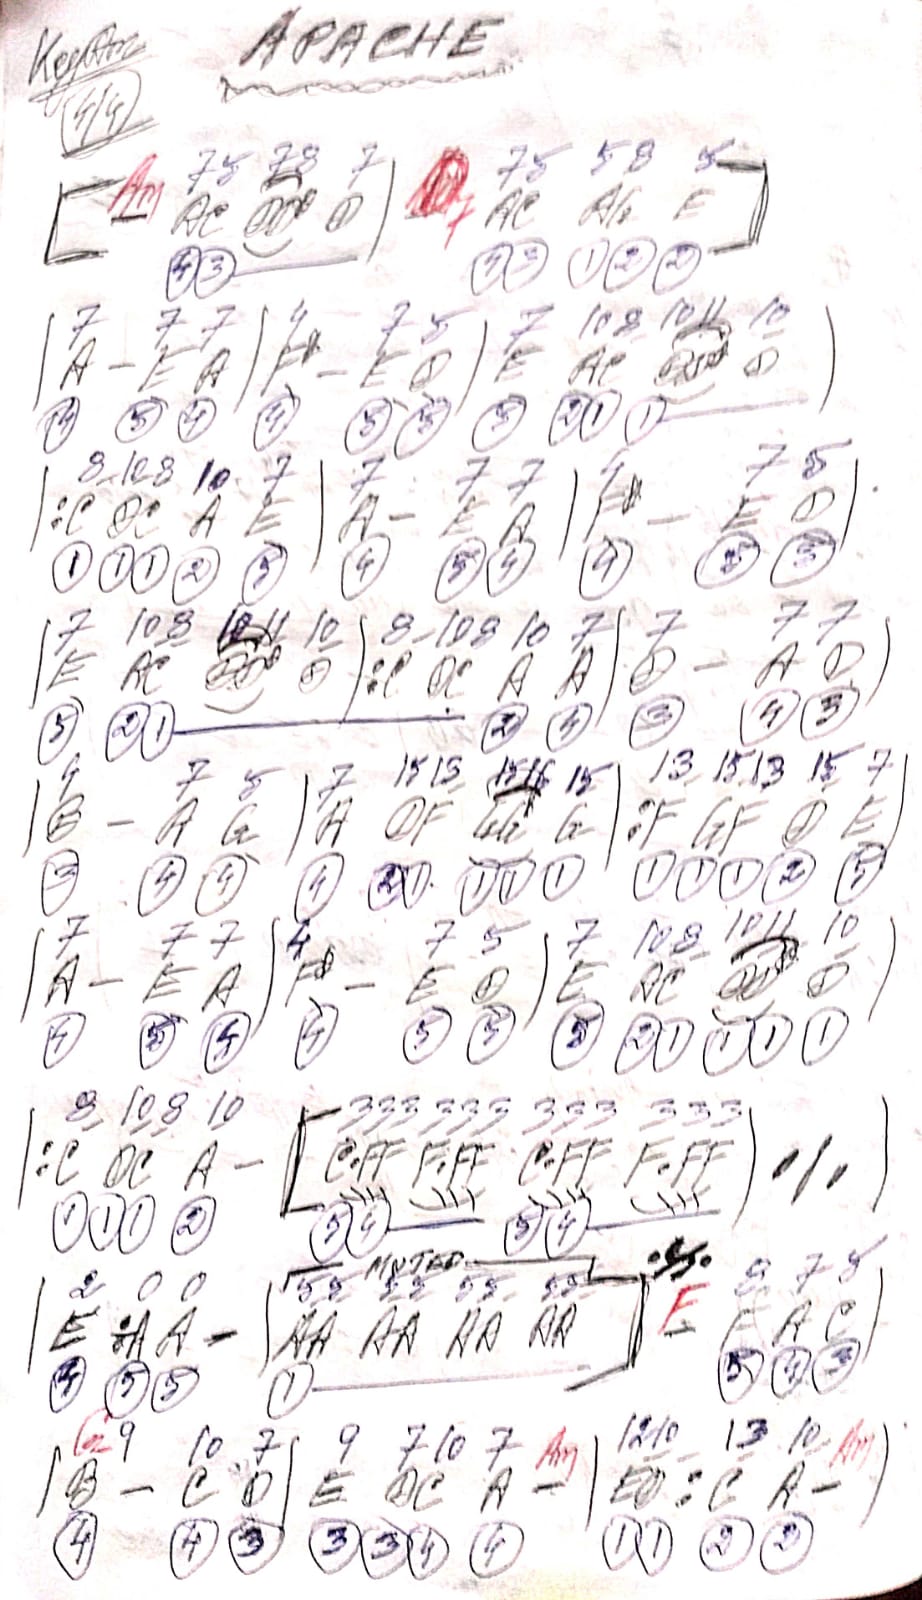 APACHE
Key Am
4/4
Am 7 5 7 8 7 7 5 5 8 5
A C D D# D D7 A C A G E
4 3 4 3 1 2 2
7 7 7 4 7 5 7 10 8 10 11 10
A - E A F# - E D E A C D D# D
4 5 4 4 5 5 5 2 1 1
8 10 8 10 7 7 7 7 4 7 5
:C D C A E A - E A F# - E D
1 1 1 2 5 4 5 4 4 5 5
7 10 8 10 11 10 8 10 8 10 7 7 7 7
E A C D D# D :C D C A A D - A D
5 2 1 2 4 3 4 3
4 7 5 7 15 13 15 16 15 13 15 13 15 7
B - A G A D F G G# G :F G F D E
3 4 4 4 2 1 1 1 1 1 1 1 2 5
7 7 7 4 7 5 7 10 8 10 11 10
A - E A F# - E D E A C D D# D
4 5 4 4 5 5 5 2 1 1 1 1
8 10 8 10 333 333 333 333
:C D C A - C.FF F.FF C.FF F.FF ./.
1 1 1 2 5 4 5 4
2 0 0 MUTED 55 55 55 55 8 7 5
E :A A - AA AA AA AA E A C
4 5 5 1 5 4 3
G 9 10 7 9 7 10 7 Am 12 10 13 10 Am
B - C D E D C A - E D : C A -
4 4 3 3 3 4 4 1 1 2 2